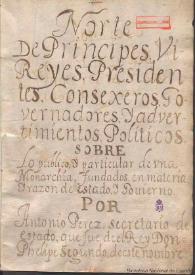 Norte
De Principes, Vi
Reyes, Presiden
tes, Consexeros, Go
vernadores, Y adver
timientos, Politicos
SOBRE
Lo publico, y particular de vna
Monarchia, Fundados, en materia
Drazon de Estado, y Govierno.
POR
Antonio Perez, secretario de
Estado, que fue del Rey Don
Phelipe Segundo, de este nombre
Biblioteca Nacional de España